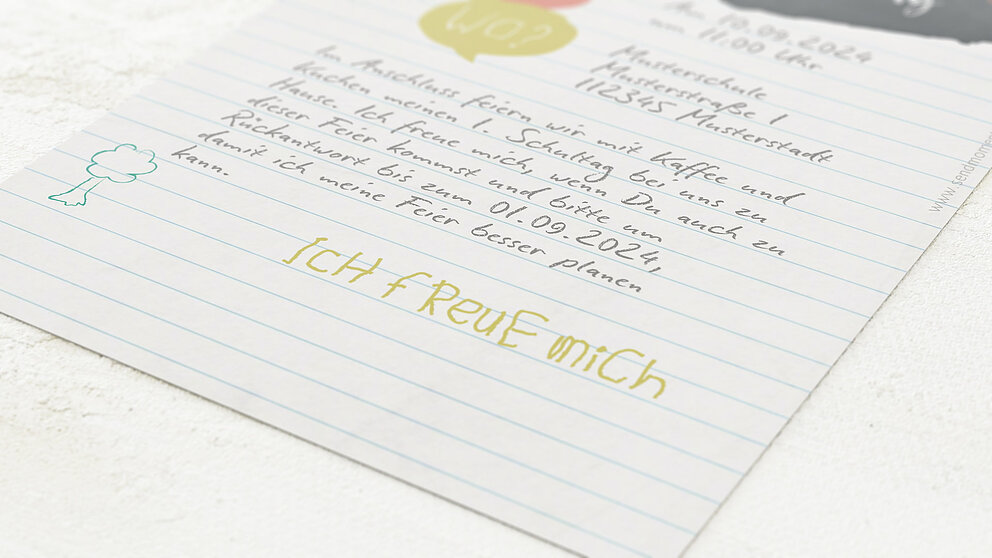 Am 10.09.2024
um 11.00 Uhr
Wo?
Musterschule
Musterstraße 1
112345 Musterstadt
Im Anschluss feiern wir mit Kaffee und
Kuchen meinen 1. Schultag bei uns zu
Hause. Ich freue mich, wenn Du auch zu
dieser Feier kommst und bitte um
Rückantwort bis zum 01.09.2024,
damit ich meine Feier besser planen
kann.
ICH fREuE miCh